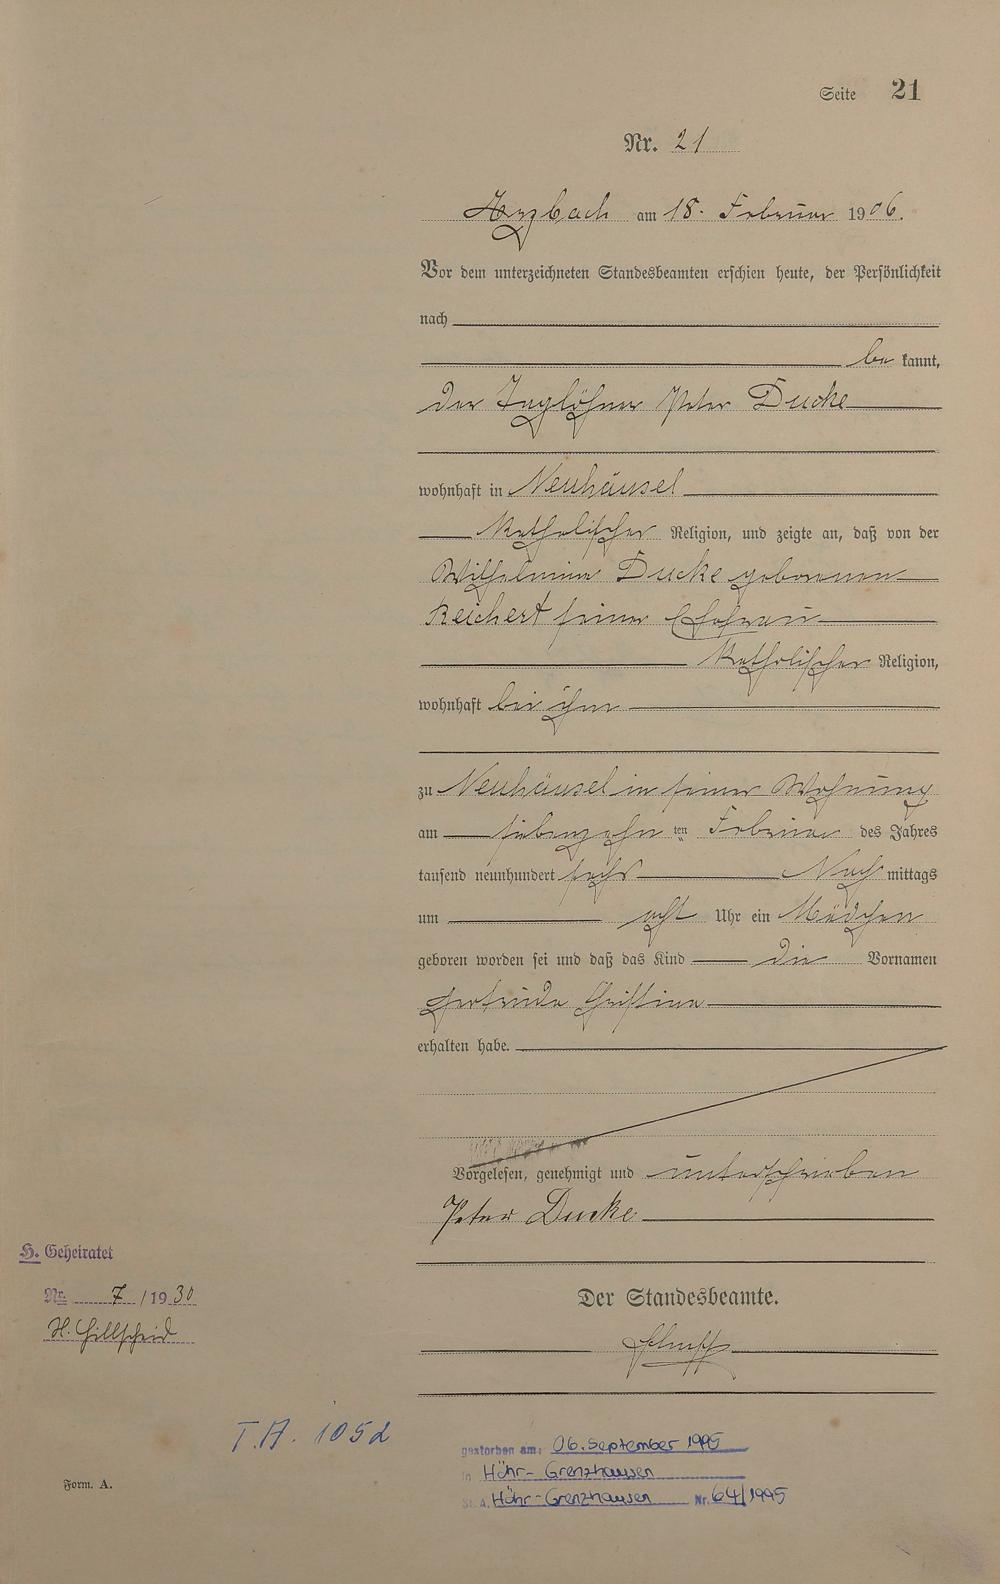 Seite 21
Nr. 21
am 18. Februar 1906.
Vor dem unterzeichneten Standesbeamten erschien heute, der Persönlichkeit
nach
be kannt,
der Taglöhner Peter Ducke
wohnhaft in Neuhäusel
katholischer Religion, und zeigte an, daß von der
Wilhelmina Ducke geborenen
Reichert seiner Ehefrau
katholischer Religion,
wohnhaft bei ihm
zu Neuhäusel in seiner Wohnung
am siebenzehn ten Februar des Jahres
tausend neunhundert sechs Nach mittags
um acht Uhr ein Mädchen
geboren worden sei und daß das Kind die Vornamen
Gertruda Christina
erhalten habe.
Vorgelesen, genehmigt und unterschrieben
Peter Ducke
H. Geheiratet
Nr. 7 / 1930
H. Hillscheid
Der Standesbeamte.
T.A. 1052
gestorben am: 06. September 1995
in Höhr-Grenzhausen
St. A. Höhr-Grenzhausen Nr. 64/1995
Form. A.